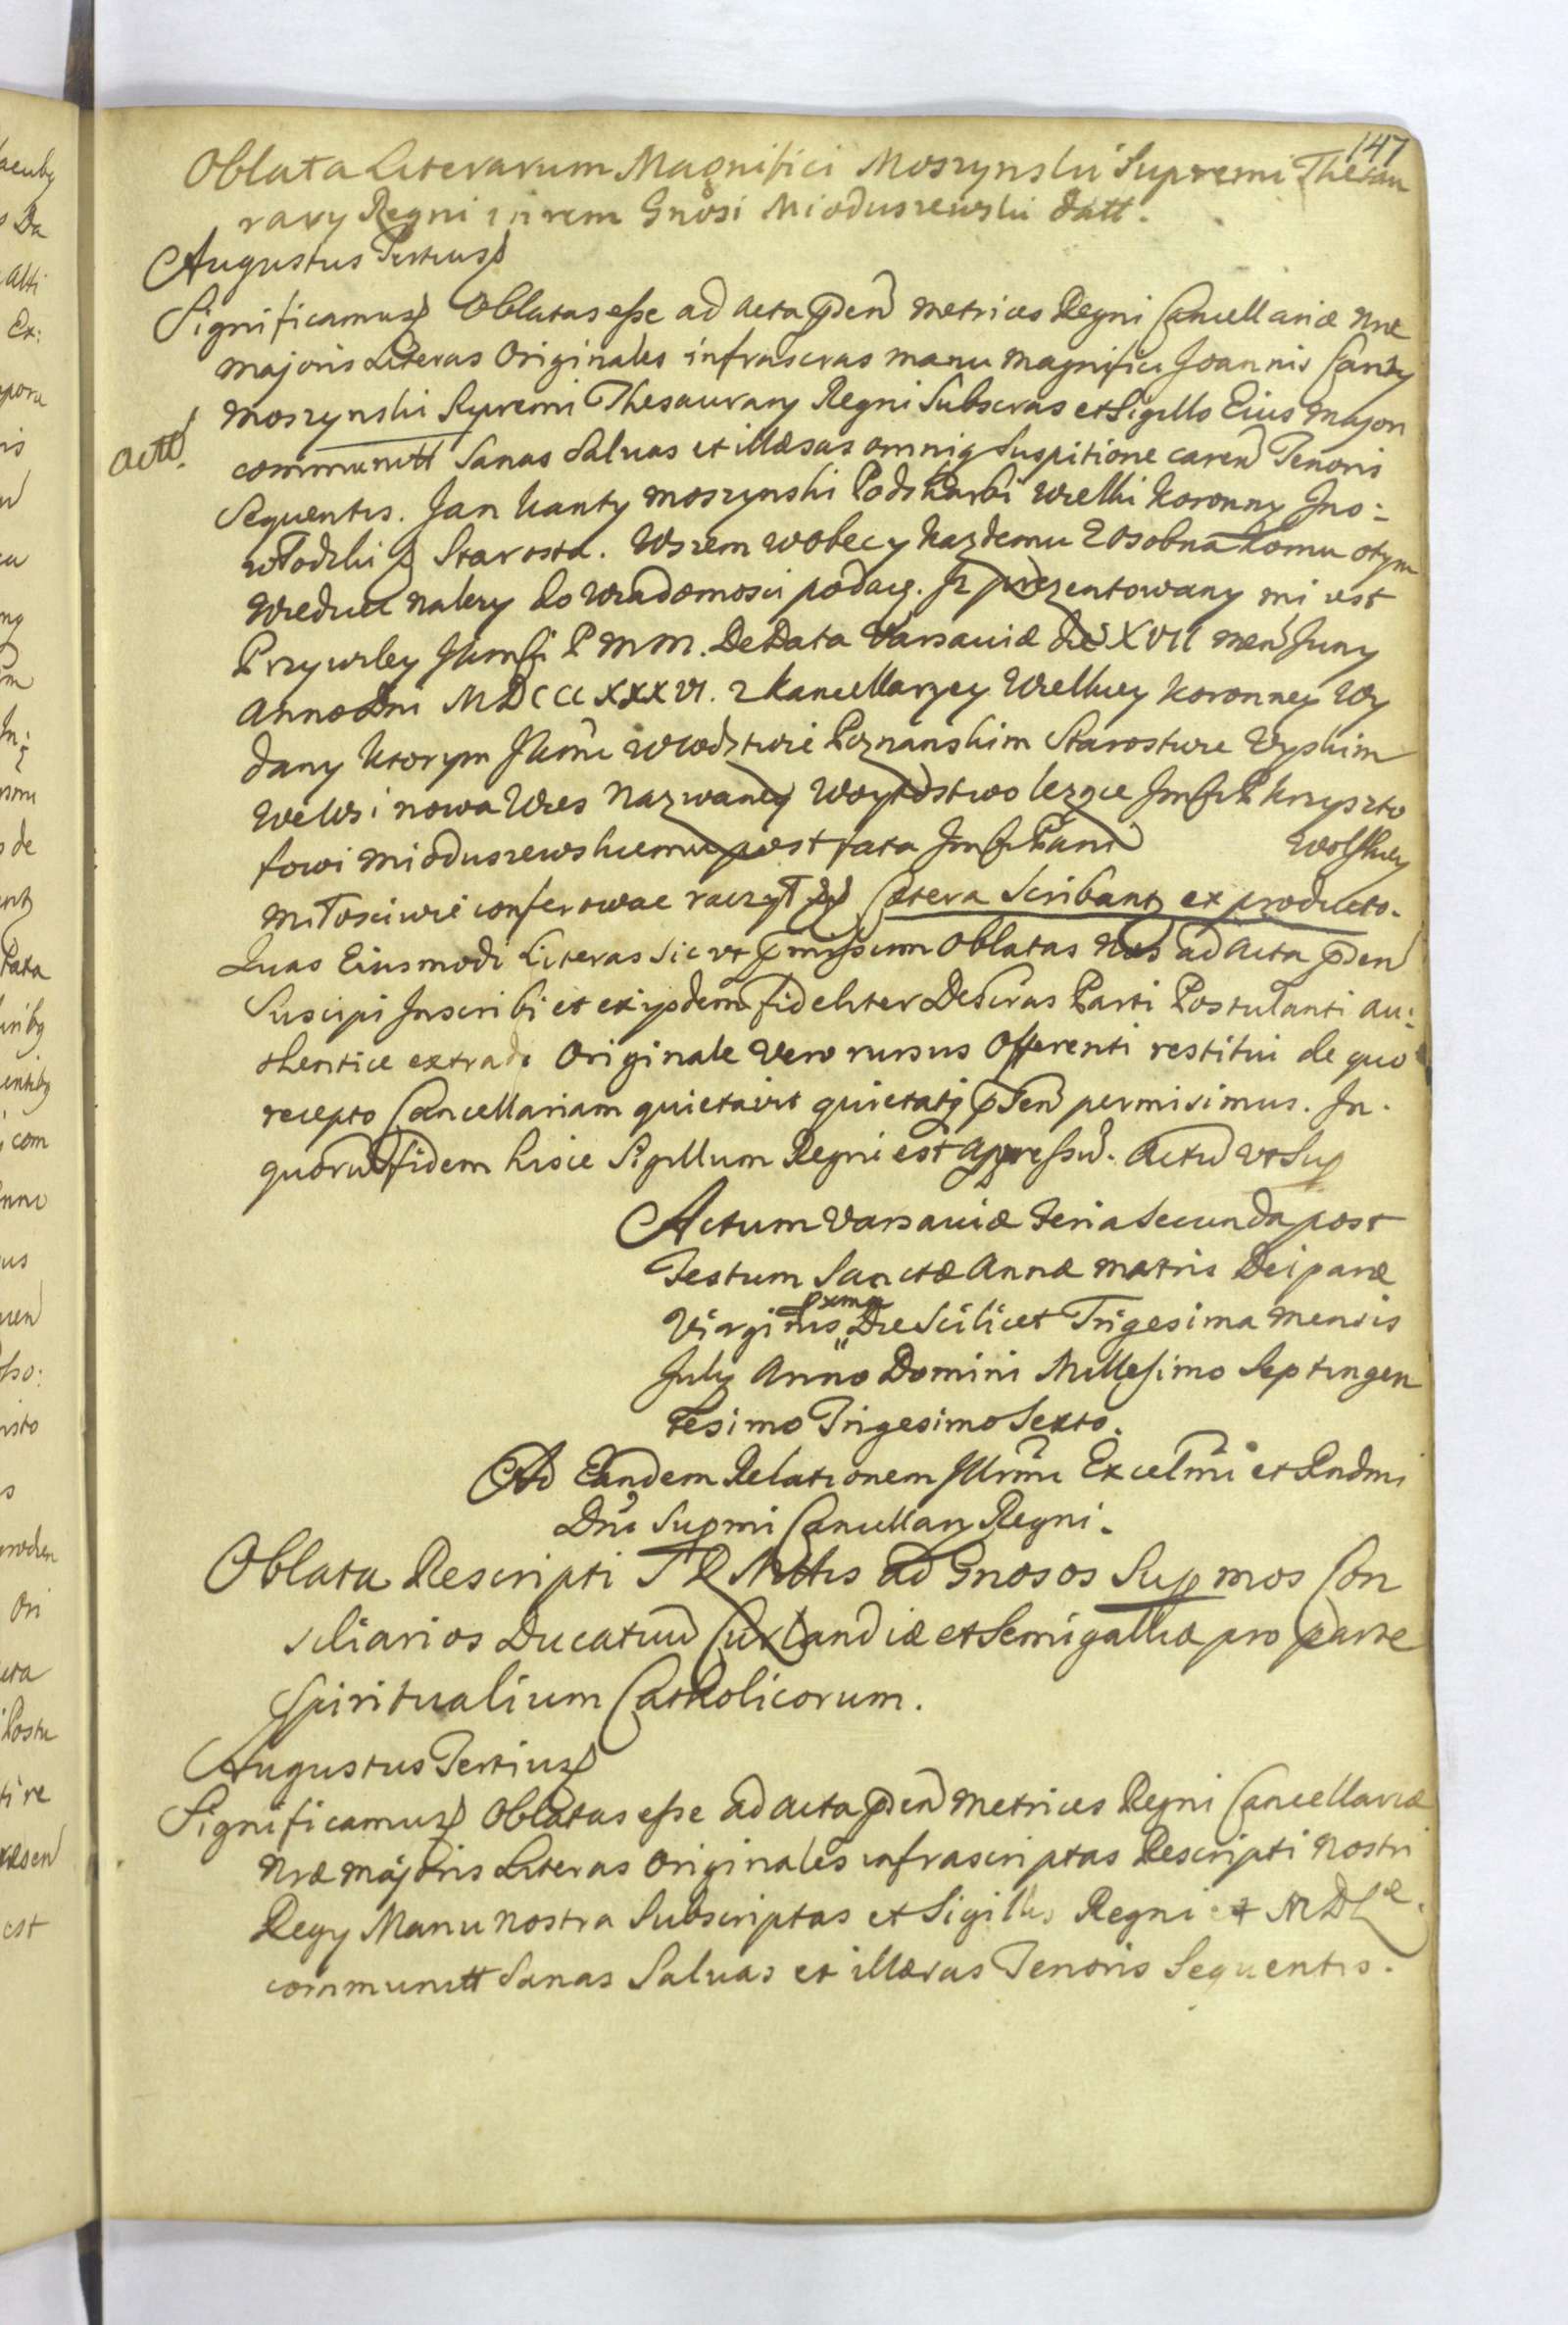 147
Oblata Literarum Magnifici Moszynski Supremi Thesau
rary Regni in rem Gnosi Mioduszewski datt.
Augustus Tertius
Significamus Oblatas esse ad Acta pden Metrices Regni Cancellariæ nræ
Majoris Literas Originales infrascras manu Magnifici Joannis Canty
Moszynski Supremi Thesaurary Regni Subscras et Sigillo Eius Majori
actt.
communitt Sanas Saluas et illæsas omniq Suspitione caren Tenoris
Sequentis. Jan Kanty Moszynski Podskarbi Wielki Koronny Ino-
włodzki Starosta. Wszem wobec y kazdemu z osobna komu otym
Wiedziec nalezy do wiadomosci podaię. Iz prezentowany mi iest
Przywiley JKmsci P M M. De Data Varsauiæ die XVII men Juny
Anno Dni MDCCCXXXVI. z Kancellaryey Wielkiey Koronney Wy
dany ktorym JKmc w Wodztwie Poznanskim Starostwie Uyskim
we Wsi nowa Wies Nazwaney Woytostwo lezące Jmsci P. Krzyszto
fowi Mioduszewskiemu post fata Jmsci Pani Wolskiey
miłosciwie conferowac raczył Cætera Scribantz ex producto.
Quas Eiusmodi Literas sic vt pmissum Oblatas Nos ad Acta pden
Suscipi Inscribi et ex iysdem fideliter Descras Parti Postulanti au:
thentice extradi Originale Vero rursus Offerenti restitui de quo
recepto Cancellariam quietauit quietatq pden permisimus. In
quorum fidem hisce Sigillum Regni est appressu. Actu vt Sup
Actum Varsauiæ Feria Secunda post
Festum Sanctæ Annæ Matris Deiparæ
pxma
Virginis Die Scilicet Trigesima Mensis
July Anno Domini Millesimo Septingen
tesimo Trigesimo Sexto.
Ad Eandem Relationem Illrmi Excelmi et Rndmi
Dni Supmi Cancellary Regni.
Oblata Rescripti S R Mttis ad Gnosos Supmos Con
siliarios Ducatuu Curlandiæ et Semigalliæ pro parte
Spiritualium Catholicorum.
Augustus Tertius
Significamus Oblatas esse ad Acta pden Metrices Regni Cancellariæ
Nræ Majoris Literas Originales infrascriptas Rescripti Nostri
Regy Manu Nostra Subscriptas et Sigillis Regni et M D L
communitt Sanas Saluas et illæsas Tenoris Sequentis.